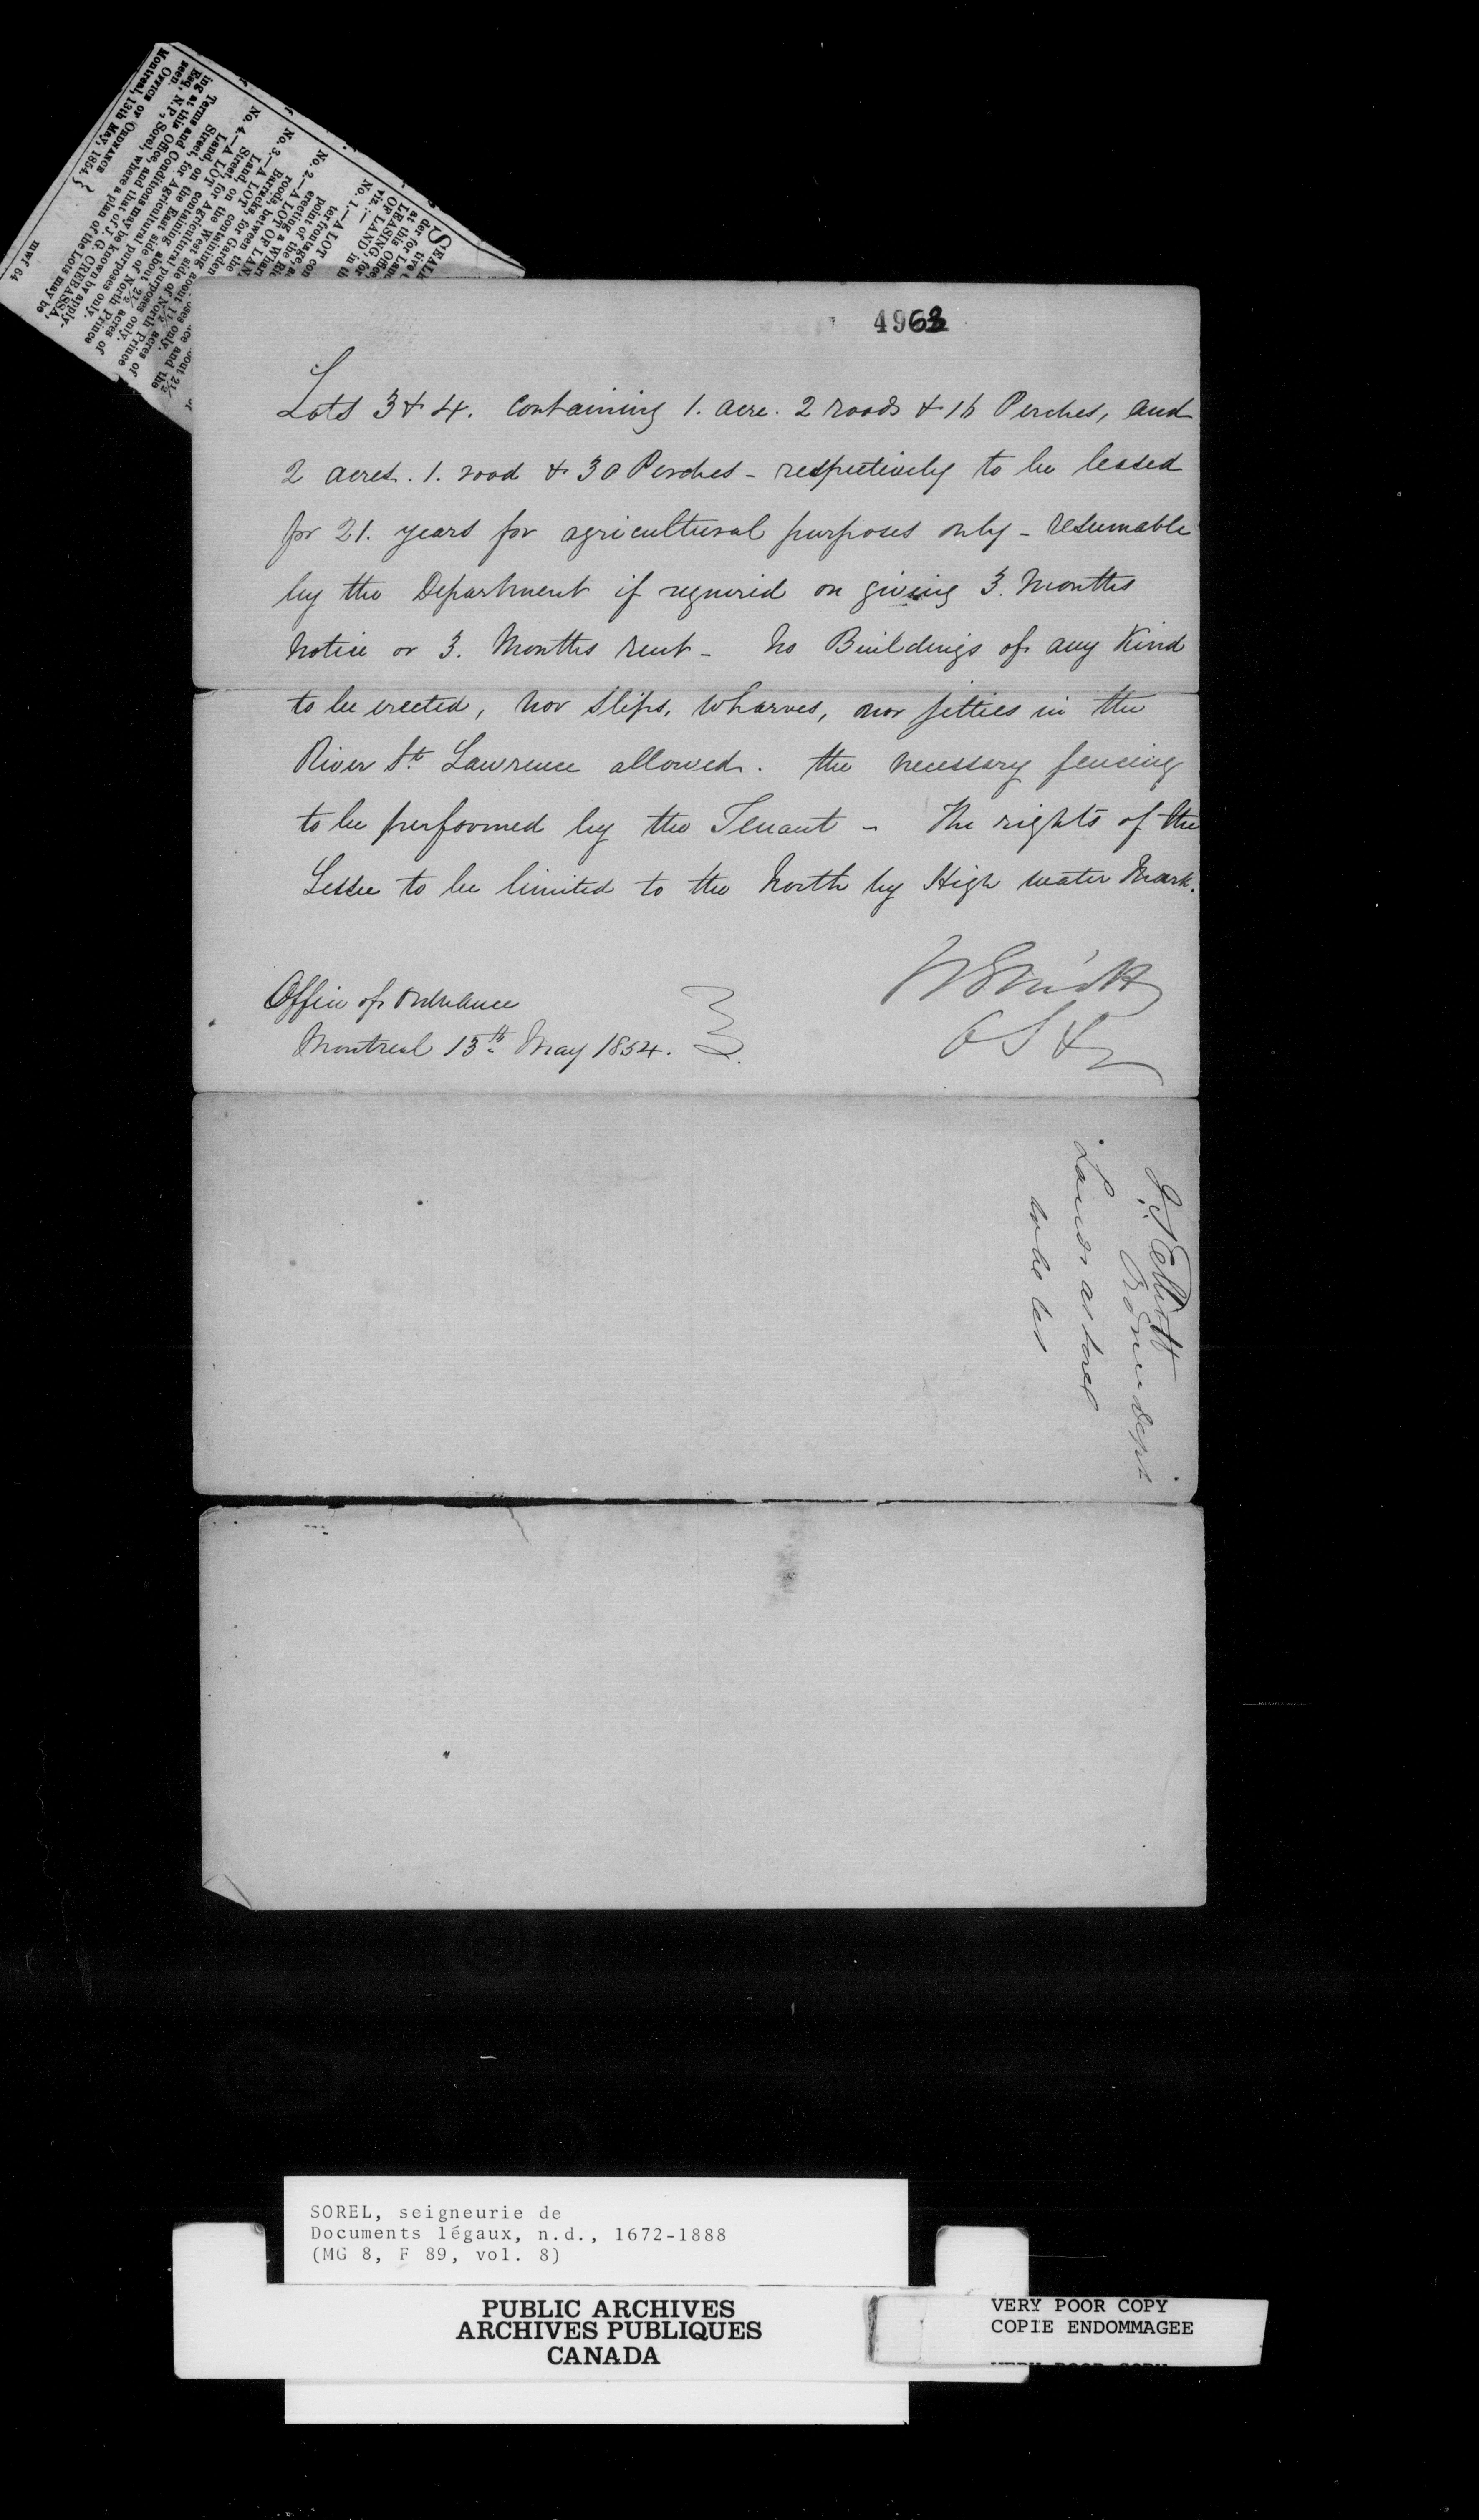 SEALE
der for
at this Office,
LEASING, for
OF LAND in th
viz:—
No. 1.—A LOT con
ter frontage, a
point of the Ric
erecting a Whar
No. 2.—A LOT OF LAN
roods, between the
Barracks, for Garden
No. 3.—A LOT containing about 1½ acres of
Land, on the West side of North Prince
Street, for Agricultural purposes only.
No. 4.—A LOT containing about 2½ acres of
Land, on the East side of North Prince
Street, for Agricultural purposes only.
Terms and Conditions may be known by apply-
ing at this Office, and that of J. G. CREBASSA,
Esq., N.P., Sorel, where a plan of the Lots may be
seen.
OFFICE OF ORDNANCE
Montreal, 13th May, 1854. }
mwf 64
4963
Lots 3 & 4. Containing 1. acre. 2 roods & 16 Perches, and
2 acres. 1. rood & 30 Perches - respectively to be leased
for 21. years for agricultural purposes only - resumable
by the Department if required on giving 3. Months
Notice or 3. Months rent - No Buildings of any Kind
to be erected, nor slips, wharves, nor jetties in the
River St. Lawrence allowed. the necessary fencing
to be performed by the Tenant - The rights of the
Lessee to be limited to the North by High water Mark.
Office of Ordnance
Montreal 13th May 1854.
J. S. Elliott
Lands at Sorel
to be let
SOREL, seigneurie de
Documents légaux, n.d., 1672-1888
(MG 8, F 89, vol. 8)
PUBLIC ARCHIVES
ARCHIVES PUBLIQUES
CANADA
VERY POOR COPY
COPIE ENDOMMAGEE
VERY POOR COPY